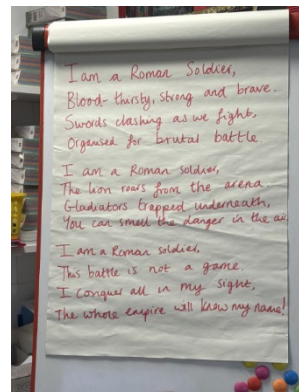 I am a Roman Soldier,
Blood-thirsty, strong and brave.
Swords clashing as we fight,
Organised for brutal battle.
I am a Roman soldier,
The lion roars from the arena.
Gladiators trapped underneath,
You can smell the danger in the air.
I am a Roman soldier,
This battle is not a game.
I conquer all in my sight,
The whole empire will know my name!